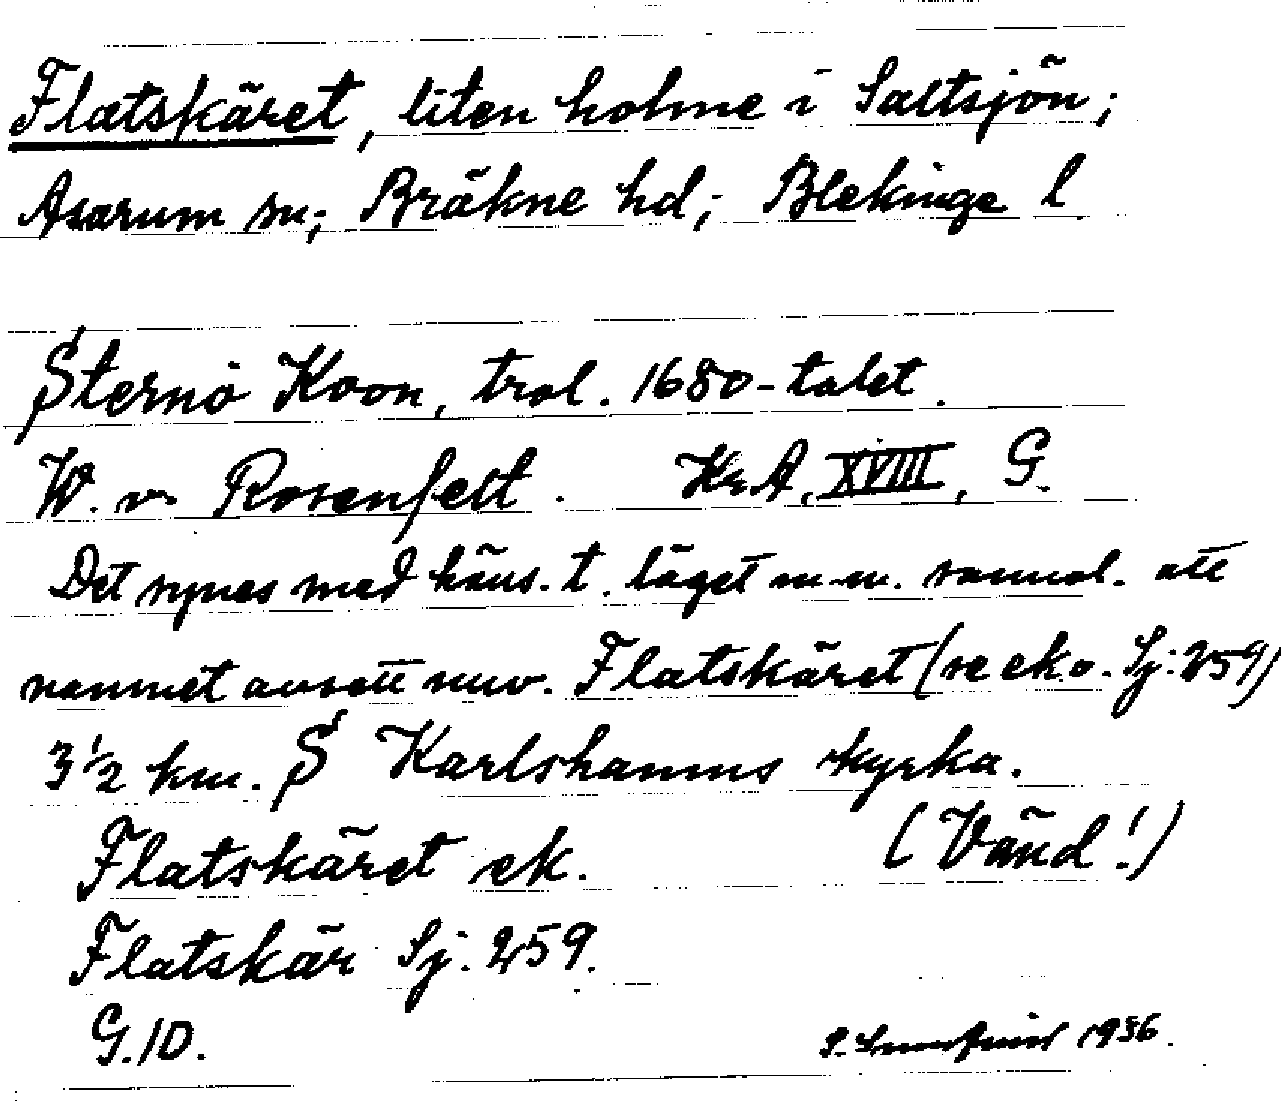 Flatskäret, liten holme i Saltsjön;
Asarum sn; Bräkne hd; Blekinge l
Sternö Koon, trol. 1680-talet.
W. v. Rosenfelt. Kr.A, XVIII, G.
Det synes med häns. t. läget m.m. sannol. att
namnet avsett nuv. Flatskäret (se ek o. Sj: 259)
3 1/2 km. S Karlshamns kyrka.
Flatskäret ek. (Vänd!)
Flatskär Sj. 259.
G.ID.
1936.